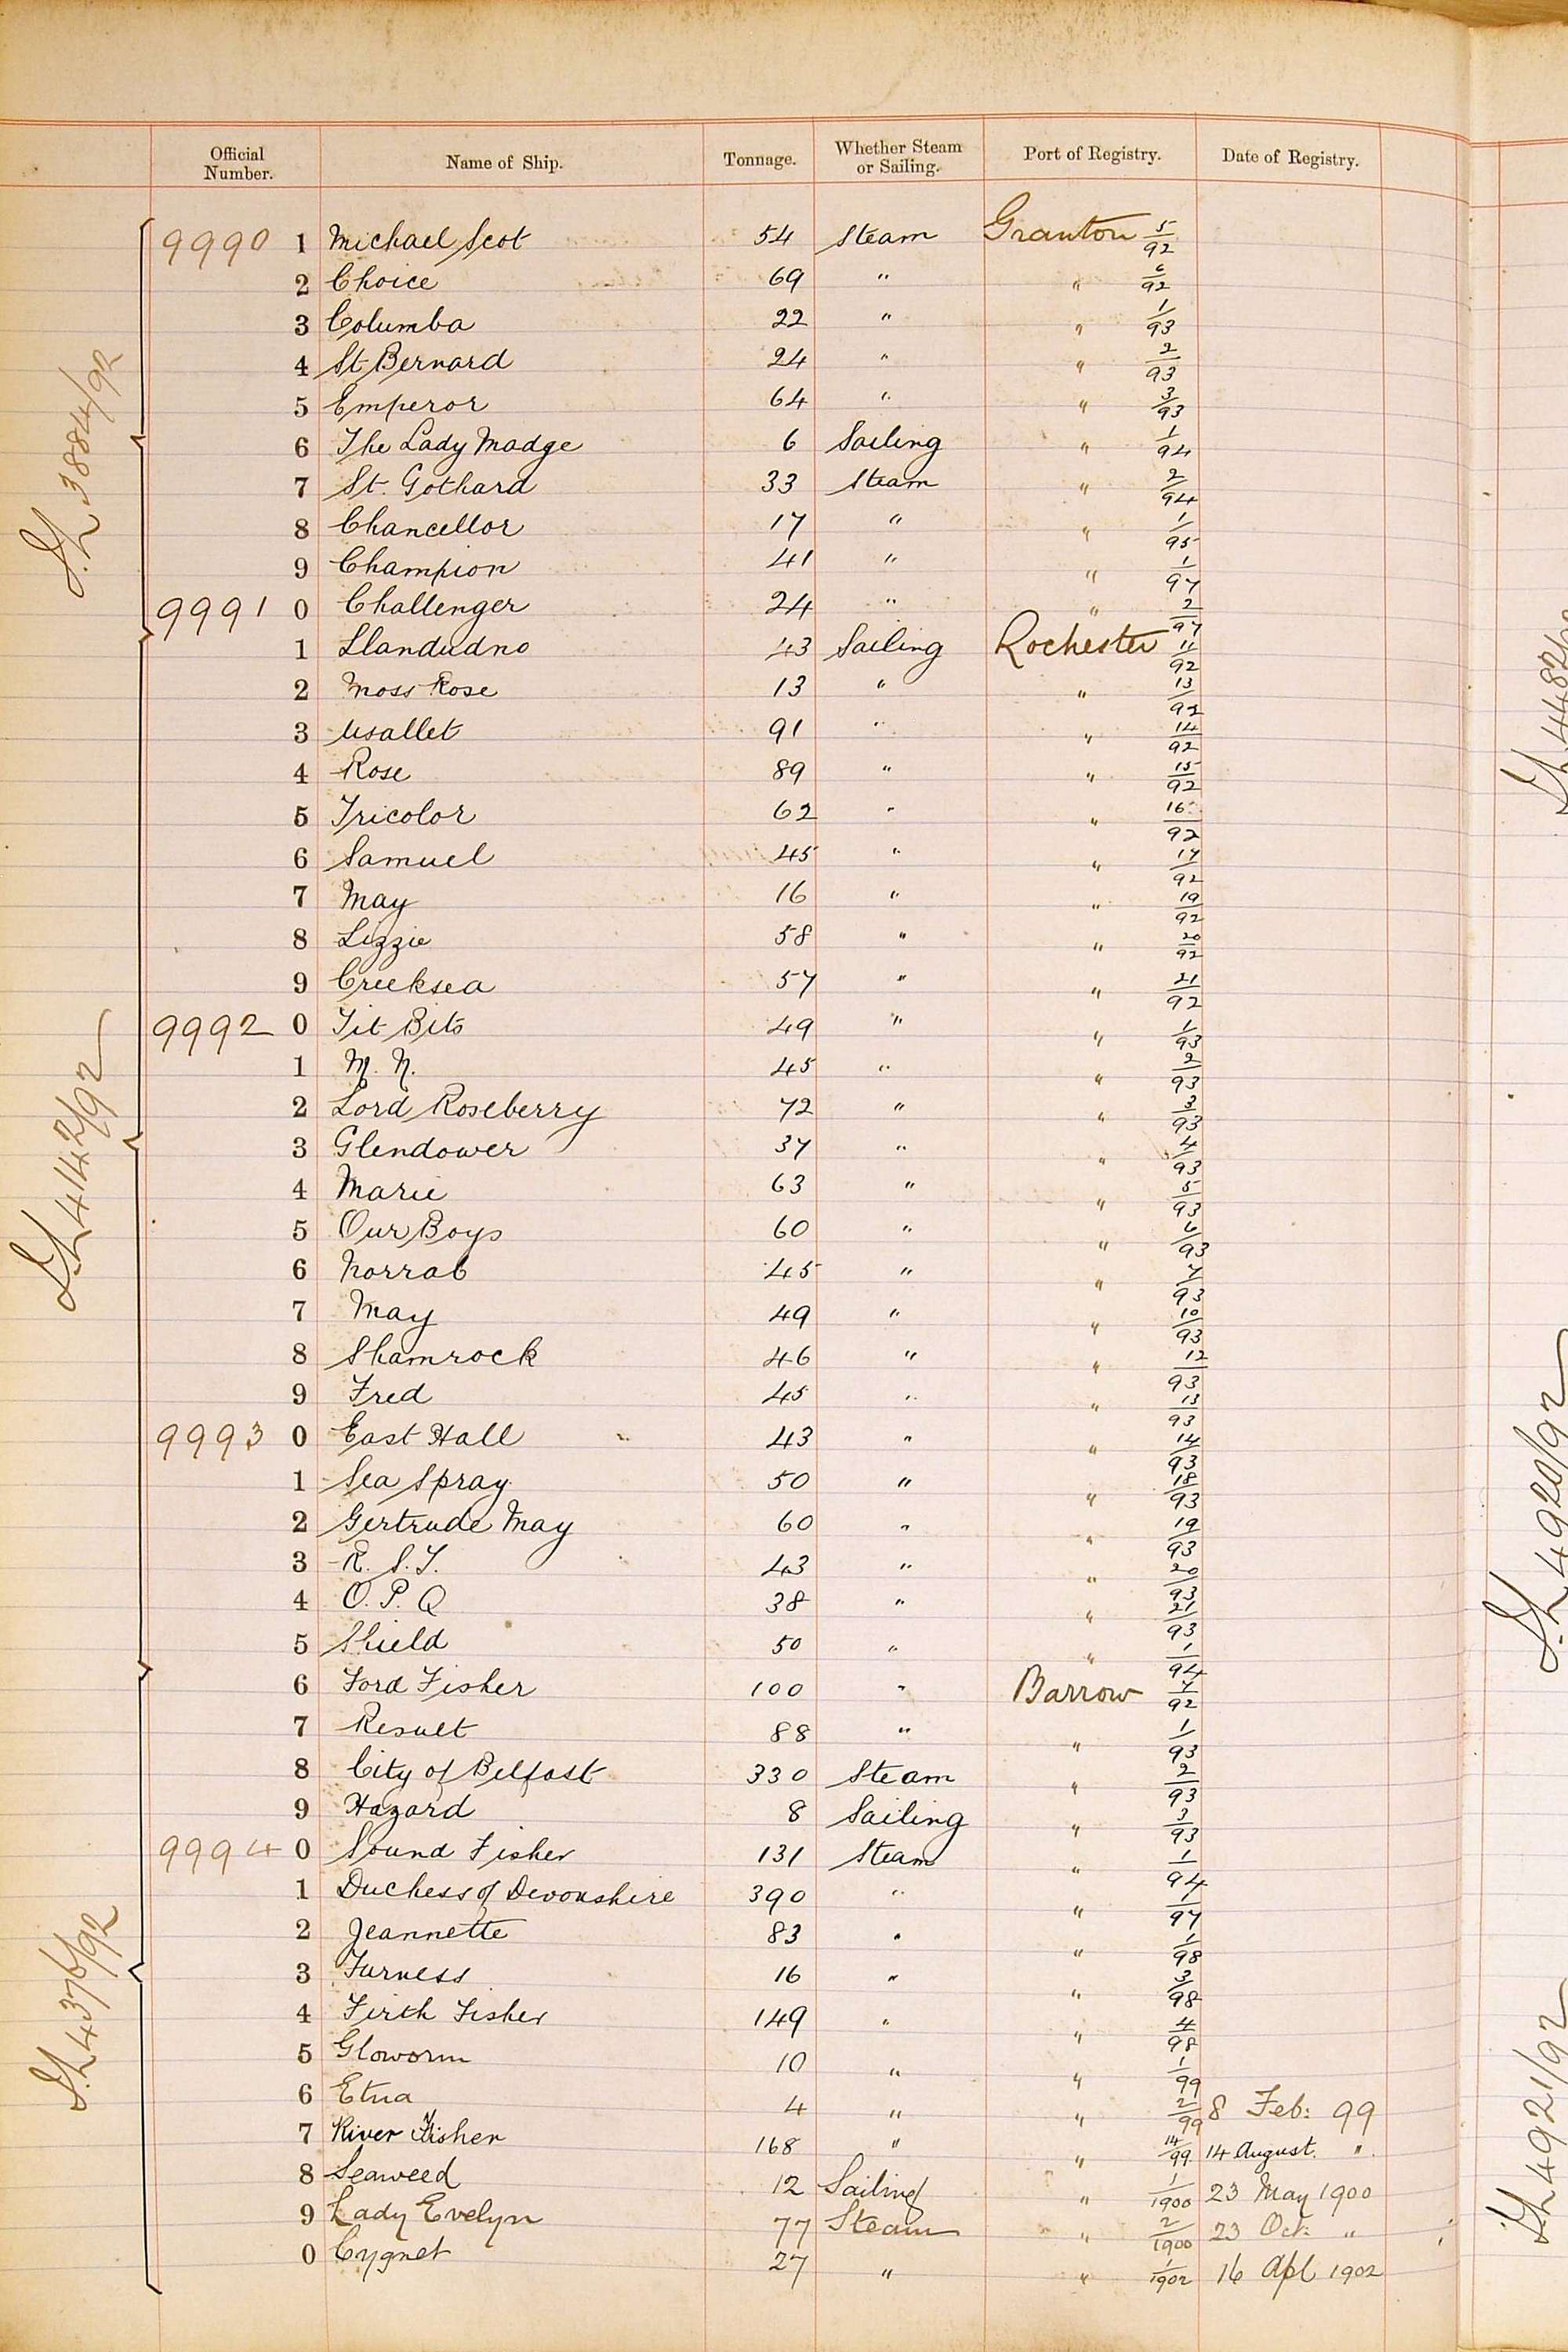 Official Number. Name of Ship. Tonnage. Whether Steam or Sailing. Port of Registry. Date of Registry.
9990 1 Michael Scot 54 Steam Granton 5/92
2 Choice 69 " " 6/92
3 Columba 22 " " 1/93
4 St Bernard 24 " " 2/93
5 Emperor 64 " " 3/93
6 The Lady Madge 6 Sailing " 1/94
7 St. Gothard 33 Steam " 2/94
8 Chancellor 17 " " 1/95
9 Champion 41 " " 1/97
9991 0 Challenger 24 " " 2/97
1 Llandudno 43 Sailing Rochester 11/92
2 Moss Rose 13 " " 13/92
3 Usallet 91 " " 14/92
4 Rose 89 " " 15/92
5 Tricolor 62 " " 16/92
6 Samuel 45 " " 17/92
7 May 16 " " 19/92
8 Lizzie 58 " " 20/92
9 Creeksea 57 " " 21/92
9992 0 Tit Bits 49 " " 1/93
1 M. N. 45 " " 2/93
2 Lord Roseberry 72 " " 3/93
3 Glendower 37 " " 4/93
4 Marie 63 " " 5/93
5 Our Boys 60 " " 6/93
6 Norrab 45 " " 7/93
7 May 49 " " 10/93
8 Shamrock 46 " " 12/93
9 Fred 45 " " 13/93
9993 0 East Hall 43 " " 14/93
1 Sea Spray 50 " " 18/93
2 Gertrude May 60 " " 19/93
3 R. S. T. 43 " " 20/93
4 O. P. Q 38 " " 21/93
5 Shield 50 " " 1/94
6 Ford Fisher 100 " Barrow 7/92
7 Result 88 " " 1/93
8 City of Belfast 330 Steam " 2/93
9 Hazard 8 Sailing " 3/93
9994 0 Sound Fisher 131 Steam " 1/94
1 Duchess of Devonshire 390 " " 1/97
2 Jeannette 83 " " 1/98
3 Furness 16 " " 3/98
4 Firth Fisher 149 " " 4/98
5 Gloworm 10 " " 1/99
6 Etna 4 " " 2/99 8 Feb: 99
7 River Fisher 168 " " 14/99 14 August. "
8 Seaweed 12 Sailing " 1/1900 23 May 1900
9 Lady Evelyn 77 Steam " 2/1900 23 Oct: "
0 Cygnet 27 " " 1/1902 16 Apl 1902
3884/92
4142/92
4376/92
4920/92
4921/92